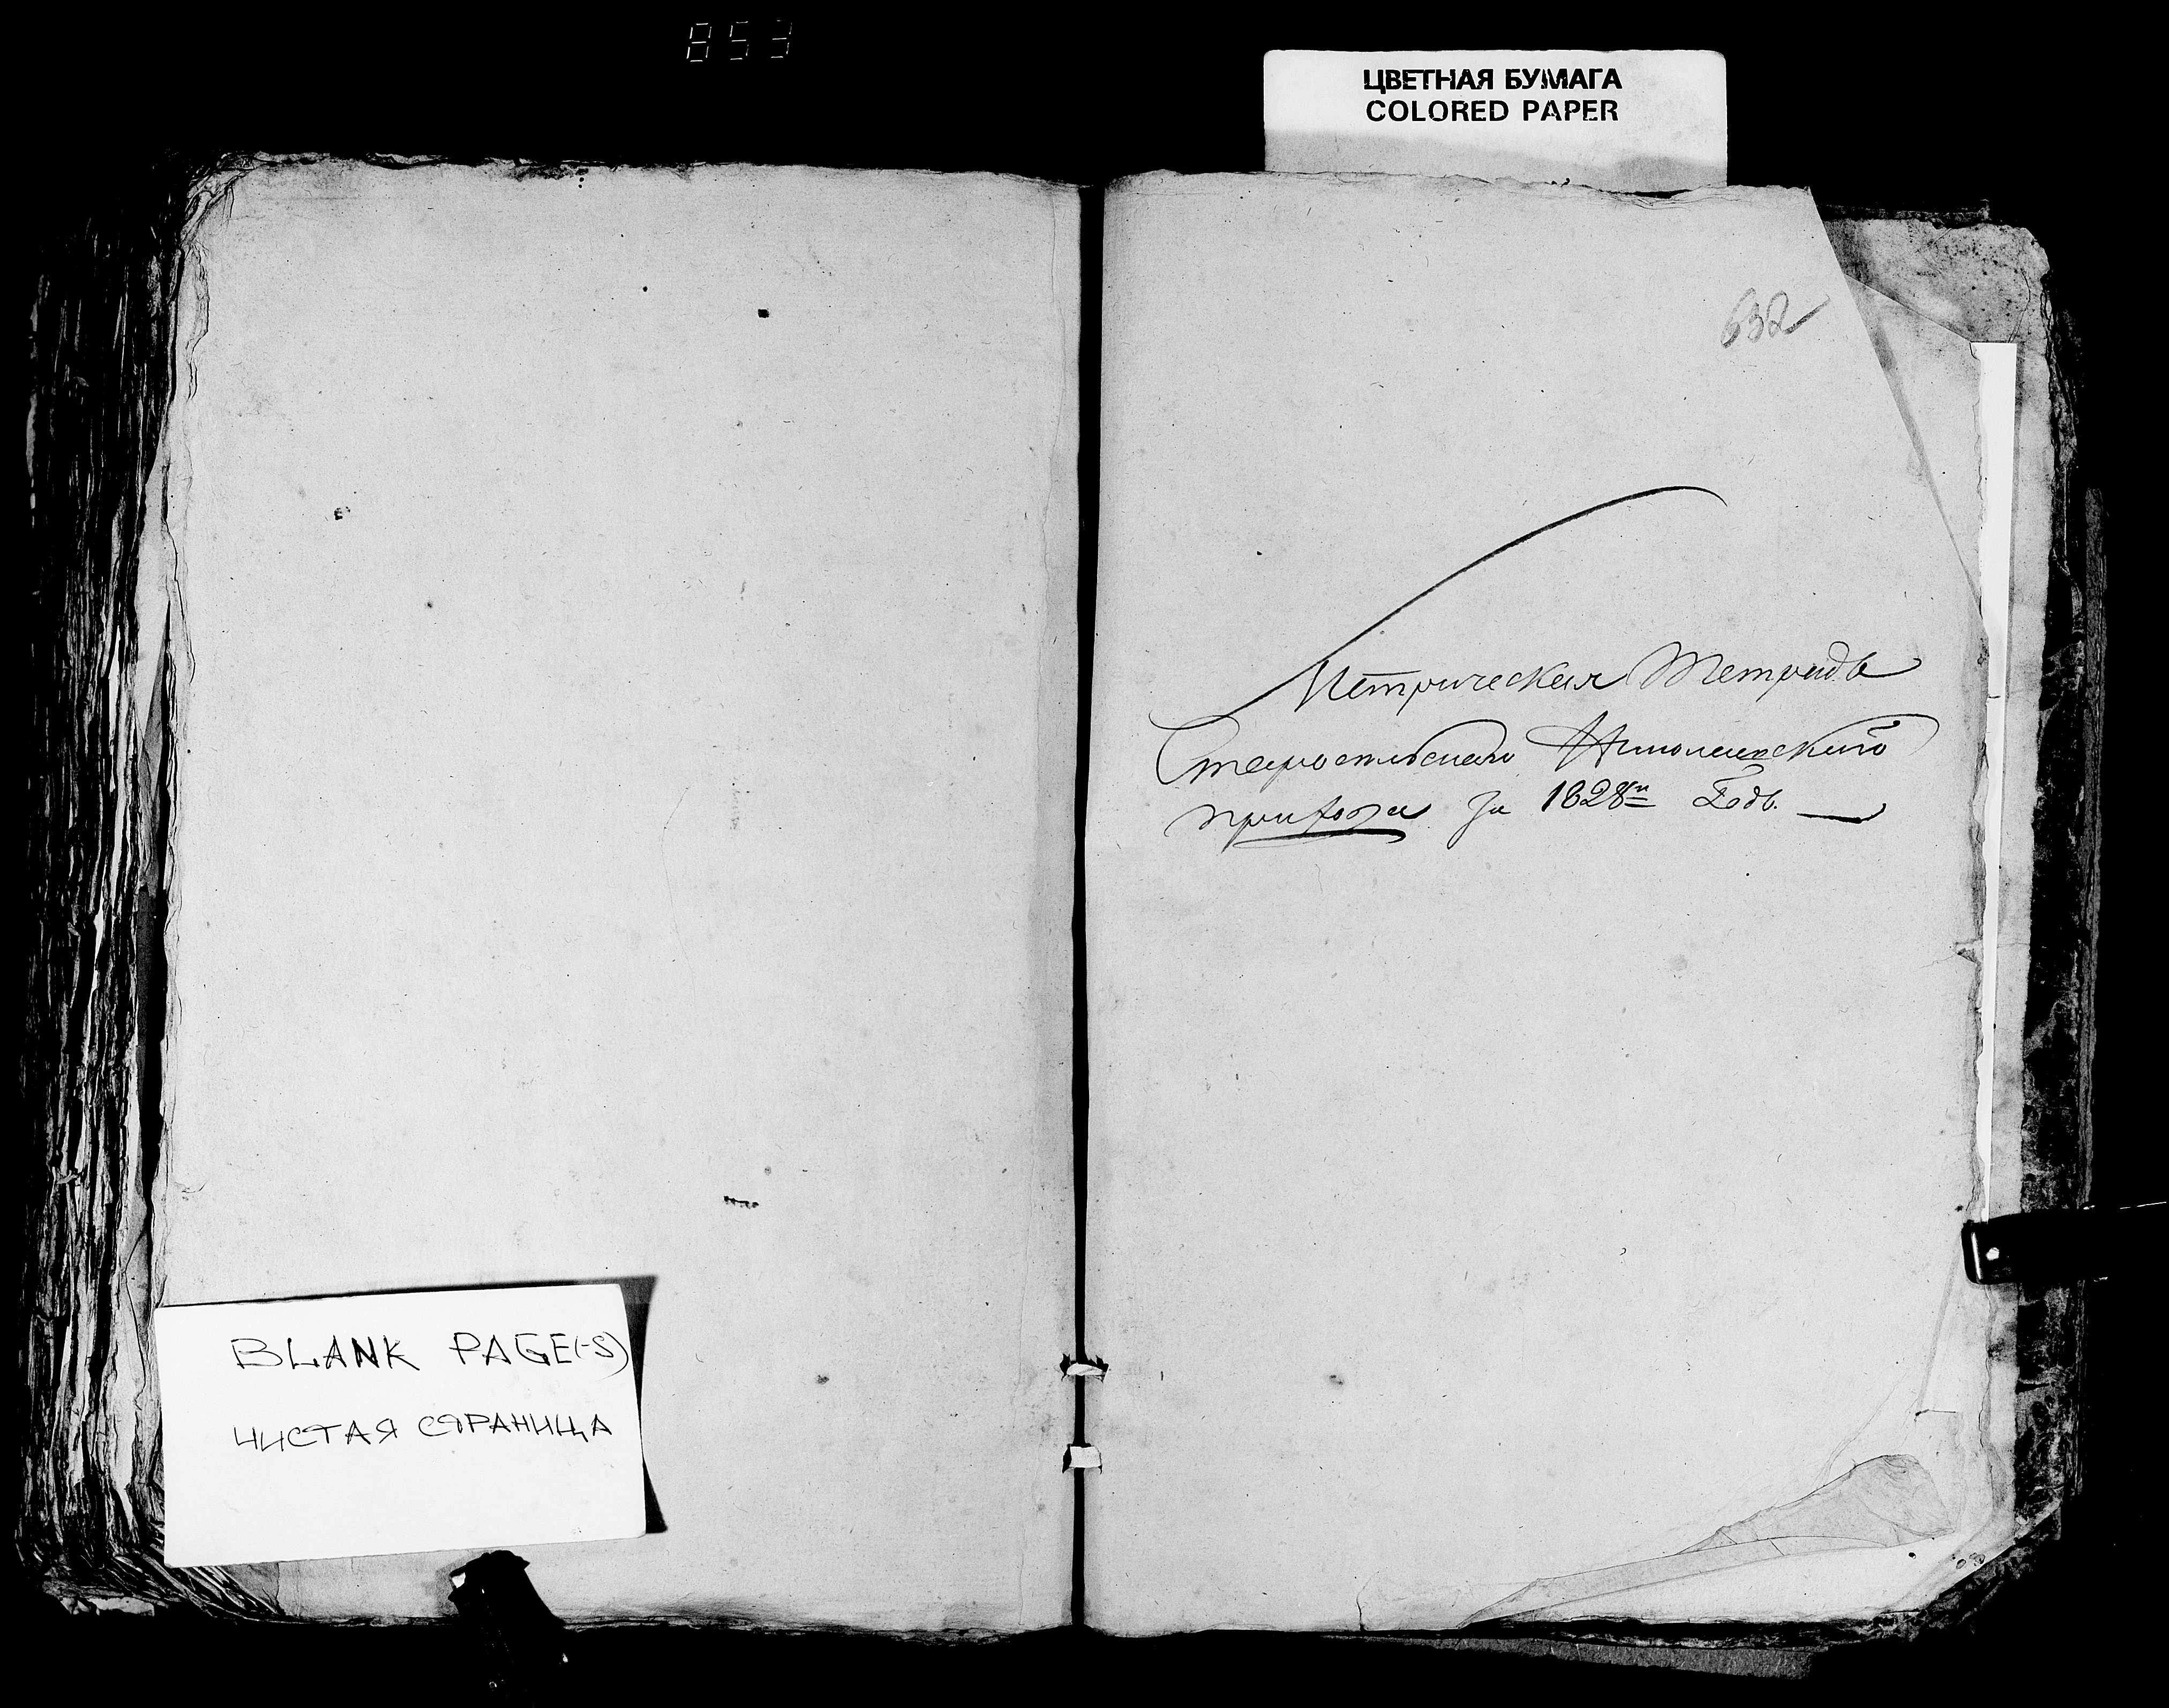 853
ЦВЕТНАЯ БУМАГА
COLORED PAPER
632
Метрическая Тетрадь
Николаевского
прихода за 1828й Годъ.
BLANK PAGE(-S)
ЧИСТАЯ СТРАНИЦА